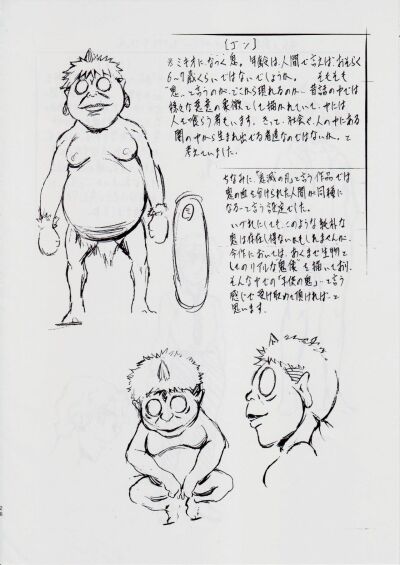 【ゴン】
※ミキオになつく鬼。年齢は、人間で言えば、おそらく
6〜7歳くらいではないでしょうか。 そもそも
"鬼"って言うのが、どこから現れるのか、昔話の中では
様々な悪意の象徴として描かれていて、中には
人を喰らう者もいます。きっと、社会や、人の中にある
闇の中から生まれ出でる者達なのではないか。と
考えていました。
ちなみに「鬼滅の刃」って言う作品では
鬼の血を分けられた人間が同様に
なる…って言う設定でした。
いずれにしても、このような
鬼は存在し得ないかもしれませんが、
今作においては、あくまで生物と
してのリアルな"鬼像"を描いており、
そんな中での「子供の鬼」…って言う
感じで受け取めて頂ければ、と
思います。